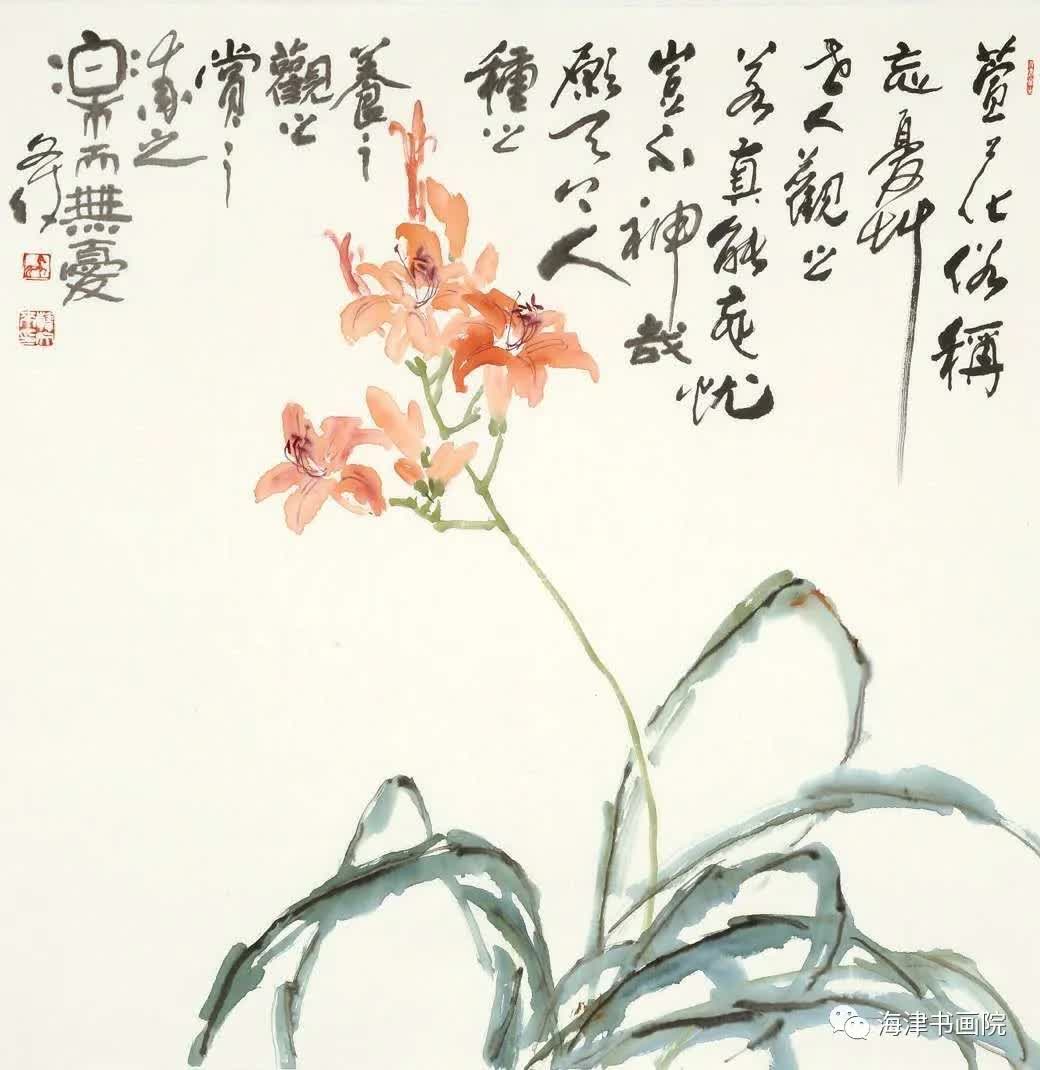 萱花俗稱
忘憂艸
世人觀之
若真能忘忧
豈不神哉
願天下人
種之
養之
觀之
賞之
之
樂而無憂
海津书画院